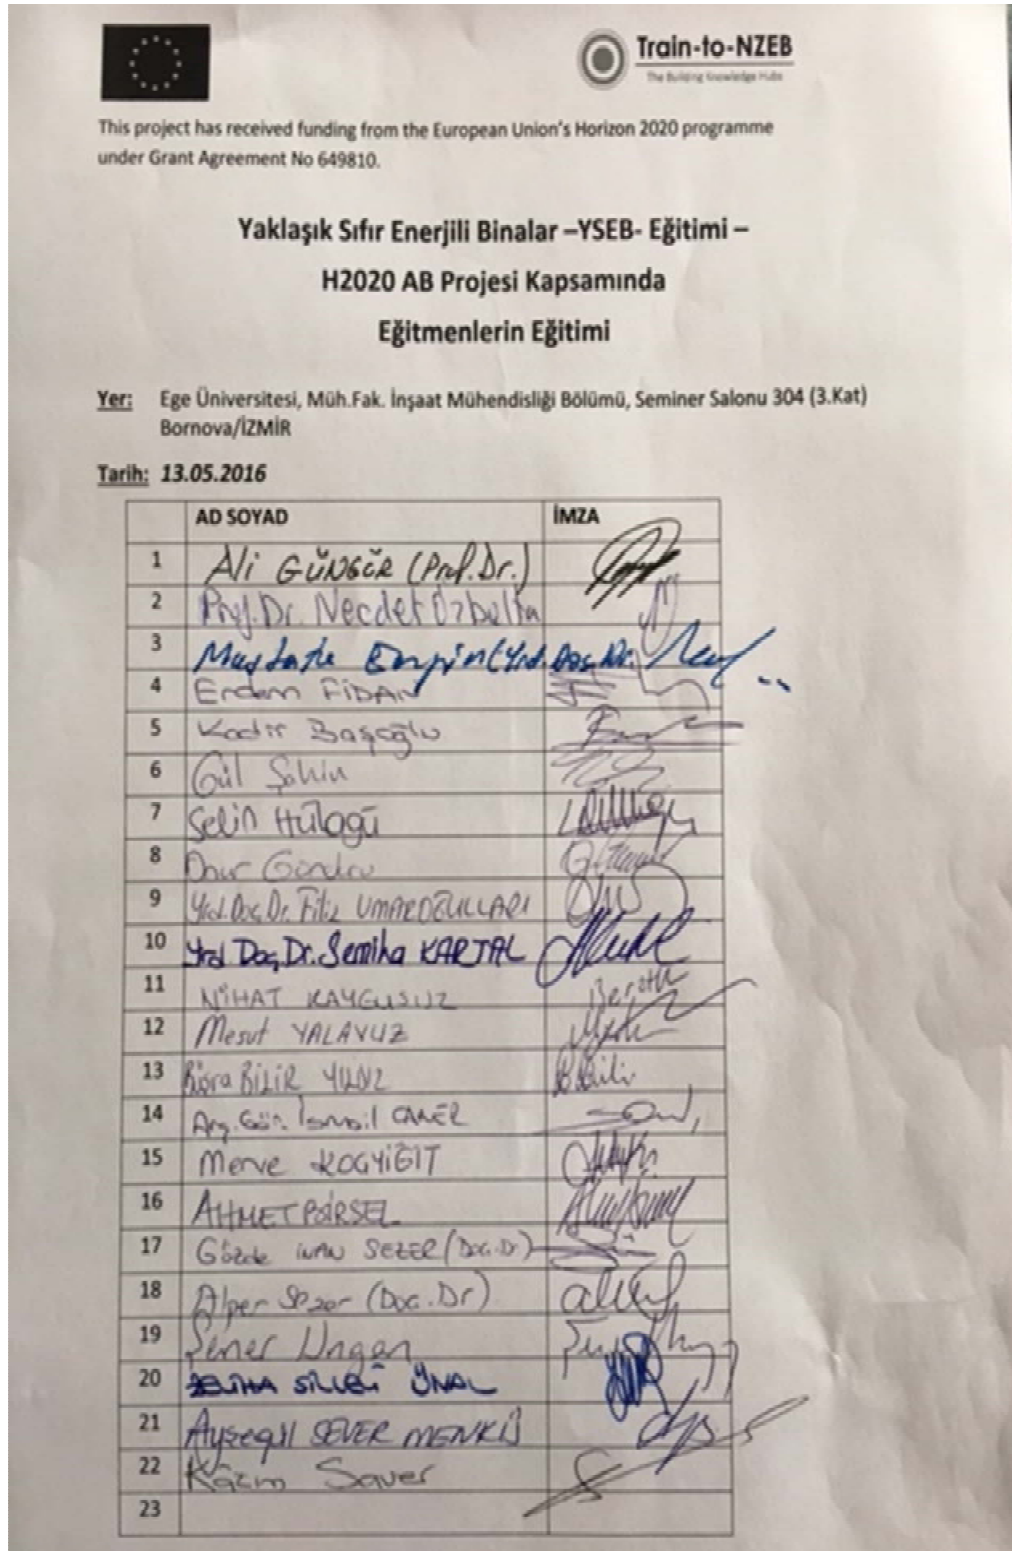 Train-to-NZEB
The Building Knowledge Hubs
This project has received funding from the European Union's Horizon 2020 programme
under Grant Agreement No 649810.
Yaklaşık Sıfır Enerjili Binalar –YSEB- Eğitimi –
H2020 AB Projesi Kapsamında
Eğitmenlerin Eğitimi
Yer: Ege Üniversitesi, Müh.Fak. İnşaat Mühendisliği Bölümü, Seminer Salonu 304 (3.Kat)
Bornova/İZMİR
Tarih: 13.05.2016
AD SOYAD İMZA
1 Ali GÜNGÖR (Prof.Dr.)
2 Prof.Dr. Necdet Özbalta
3 Mustafa Engin (Yrd.Doç.Dr.
4 Erdem FİDAN
5 Kadir Başoğlu
6 Gül Şahin
7 Selin Hüloğü
8 Onur
9 Yrd.Doç.Dr. Filiz UMAROĞULLARI
10 Yrd Doç.Dr. Semiha KARTAL
11 NİHAT KAYGUSUZ
12 Mesut YALAVUZ
13 Büşra BİLİR YILDIZ
14 Arş.Gör. İsmail CANER
15 Merve KOÇYİĞİT
16 AHMET
17 Gözde İNAN SEZER (Doç.Dr)
18 Alper Sezer (Doç.Dr)
19 Şener Ungan
20 ÜNAL
21 Ayşegül SEVER MENKİŞ
22 Kazım Saver
23